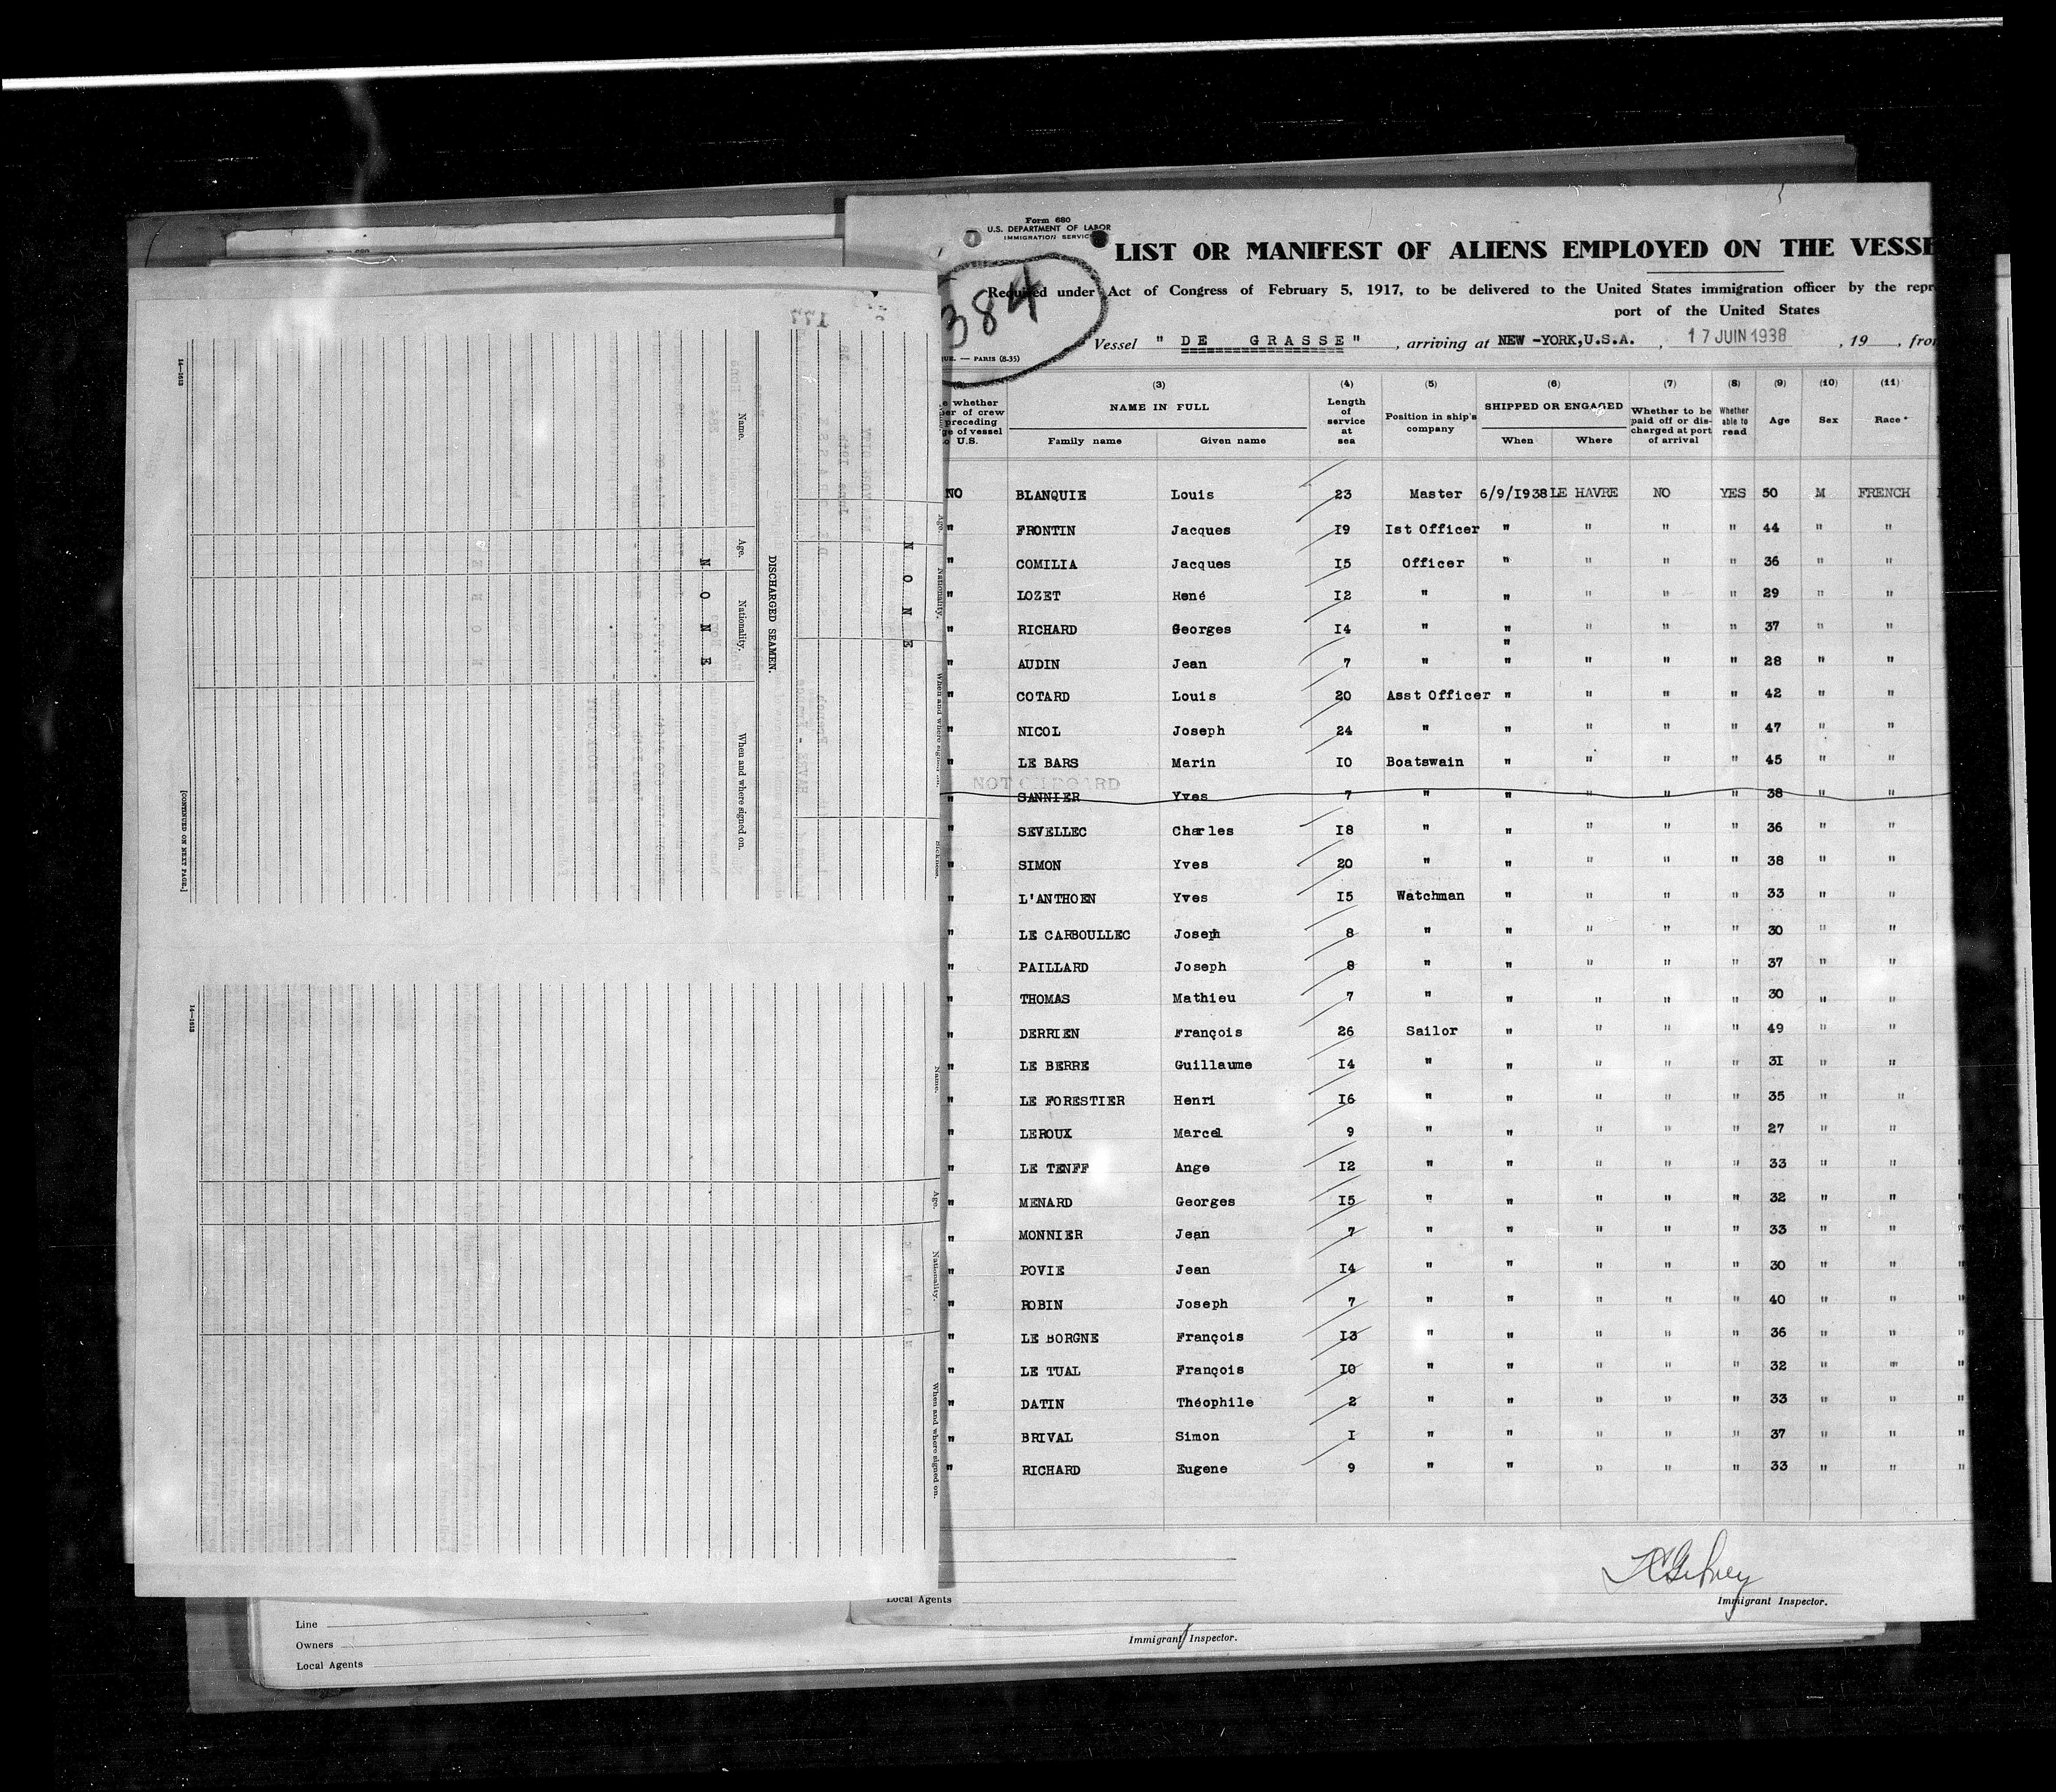 Form 680
U.S. DEPARTMENT OF LABOR
IMMIGRATION SERVICE
LIST OR MANIFEST OF ALIENS EMPLOYED ON THE VESSE
384
Required under Act of Congress of February 5, 1917, to be delivered to the United States immigration officer by the repr
port of the United States
Vessel " DE GRASSE " , arriving at NEW -YORK,U.S.A. , 17 JUIN 1938 , 19 , fro
UE. — PARIS (8-35)
(3) (4) (5) (6) (7) (8) (9) (10) (11)
e whether
er of crew
preceding
ge of vessel
o U.S.
NAME IN FULL
Family name Given name
Length of service at sea
Position in ship's company
SHIPPED OR ENGAGED
When Where
Whether to be paid off or dis- charged at port of arrival
Whether able to read
Age
Sex
Race *
NO BLANQUIE Louis 23 Master 6/9/1938 LE HAVRE NO YES 50 M FRENCH
" FRONTIN Jacques 19 Ist Officer " " " " 44 " "
" COMILIA Jacques 15 Officer " " " " 36 " "
" LOZET René 12 " " " " " 29 " "
" RICHARD Georges 14 " " " " " 37 " "
" AUDIN Jean 7 " " " " " 28 " "
" COTARD Louis 20 Asst Officer " " " " 42 " "
" NICOL Joseph 24 " " " " " 47 " "
" LE BARS Marin 10 Boatswain " " " " 45 " "
NOT ON BOARD
" SANNIER Yves 7 " " " " " 38 " "
" SEVELLEC Charles 18 " " " " " 36 " "
" SIMON Yves 20 " " " " " 38 " "
" L'ANTHOEN Yves 15 Watchman " " " " 33 " "
" LE CARBOULLEC Joseph 8 " " " " " 30 " "
" PAILLARD Joseph 8 " " " " " 37 " "
" THOMAS Mathieu 7 " " " " " 30 " "
" DERRIEN François 26 Sailor " " " " 49 " "
" LE BERRE Guillaume 14 " " " " " 31 " "
" LE FORESTIER Henri 16 " " " " " 35 " "
" LEROUX Marcel 9 " " " " " 27 " "
" LE TENFF Ange 12 " " " " " 33 " "
" MENARD Georges 15 " " " " " 32 " "
" MONNIER Jean 7 " " " " " 33 " "
" POVIE Jean 14 " " " " " 30 " "
" ROBIN Joseph 7 " " " " " 40 " "
" LE BORGNE François 13 " " " " " 36 " "
" LE TUAL François 10 " " " " " 32 " "
" DATIN Théophile 2 " " " " " 33 " "
" BRIVAL Simon I " " " " " 37 " "
" RICHARD Eugene 9 " " " " " 33 " "
Immigrant Inspector.
Local Agents
Line
Owners
Local Agents
Immigrant Inspector.
177
Age. Nationality. When and where signed on. Sickness.
NONE
DISCHARGED SEAMEN.
Name. Age. Nationality. When and where signed on.
NONE
14—1613
[CONTINUED ON NEXT PAGE.]
Name. Age. Nationality. When and where signed on.
14—1613